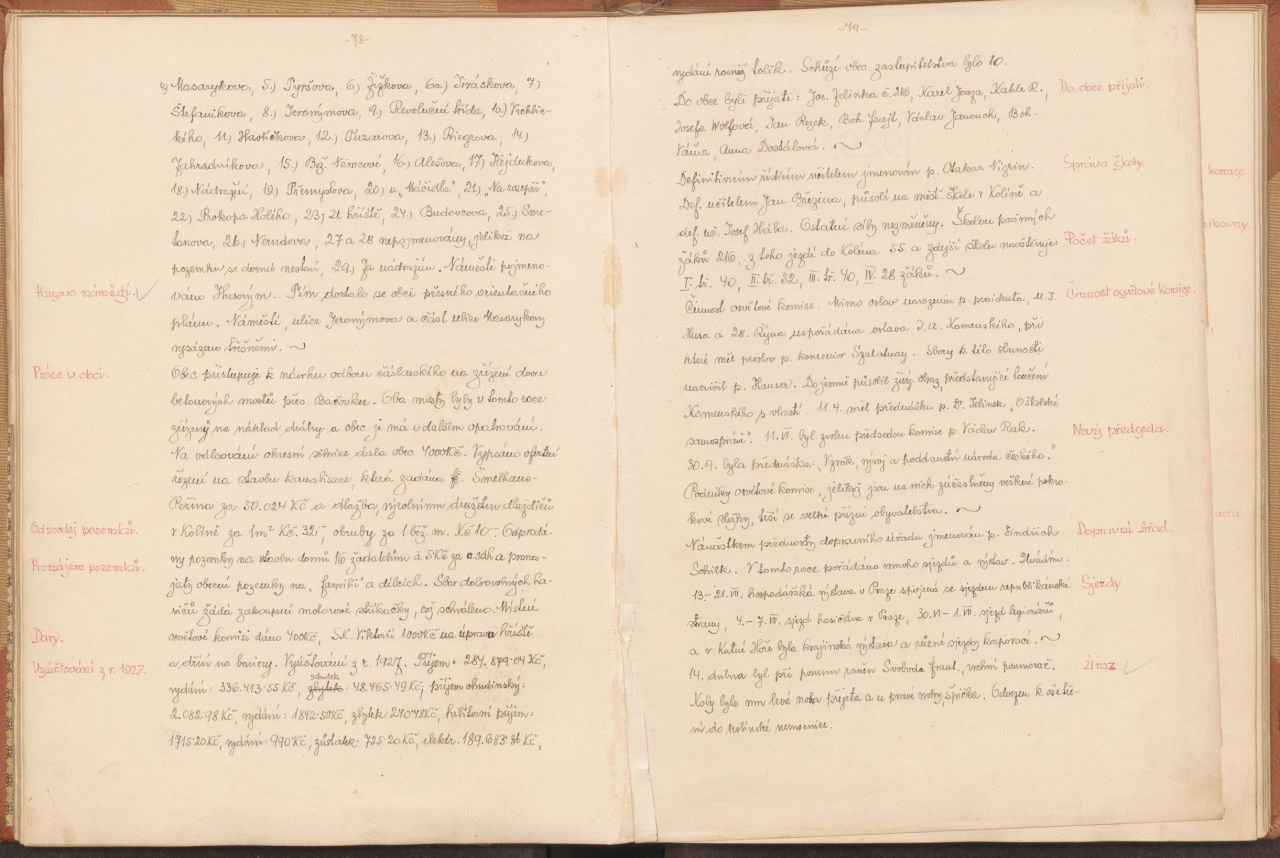 -78-
4) Masarykova, 5.) Tyršova, 6.) Žižkova, 6a.) Jiráskova, 7.)
Štefanikova, 8.) Jeronýmova, 9.) Revoluční třída, 10.) Vrchlic-
kého, 11.) Havlíčkova, 12.) 13.) Riegrova, 14.)
Zahradníkova, 15.) Bož. Němcové, 16.) Alešova, 17.) Hejdukova,
18.) Nádražní, 19.) Přemyslova, 20.) u „Máčidla“, 21.) „Na rozepři“,
22.) Prokopa Holého, 23.) Zl hříště, 24.) Budovcova, 25.) Sme-
tanova, 26.) Nerudova, 27 a 28 nepojmenovány, jelikož na
pozemku se dosud nestaví, 29.) Za nádražím. Náměstí pojmeno-
Husovo náměstí.
váno Husovým. Tím dostalo se obci přesného orientačního
plánu. Náměstí, ulice Jeronýmova a část ulice Masarykovy
vysázeno třešněmi.
Práce v obci.
Obec přistupuje k návrhu odboru čáslavského na zřízení dvou
betonových mostů přes Bačovku. Oba mosty byly v tomto roce
zřízeny na náklad dráhy a obec je má v dalším opatrování.
Na válcování okresní silnice dala obec 4000 Kč. Vypsáno ofertní
řízení na stavbu kanalisace, která zadána fě. Šmelhaus-
Peřina za 50.024 Kč a dlažba, výrobnímu družstvu dlaždičů
Odprodej pozemků.
v Kolíně za 1m² Kč. 32·, obruby za 1 běž. m. Kč 10·- Odprodá-
ny pozemky na stavbu domů 16 žadatelům á 5 Kč za sáh a prona-
Pronájem pozemků.
jaty obecní pozemky na „familii“ a dílcích. Sbor dobrovolných ha-
sičů žádá zakoupení motorové stříkačky, což schváleno. Místní
Dary.
osvětové komisi dáno 400 Kč, S.K. Viktorii 1000 Kč na úpravu hříště
a dříví na bariery. Vyúčtování z r. 1927. Příjem: 284.879·04 Kč,
Vyúčtování z r. 1927.
schodek
vydání: 336.413·55 Kč, zbytek: 48.465·49 Kč; příjem chudinský:
2.082·98 Kč, vydání: 1842·50 Kč, zbytek 240·48 Kč, hřbitovní příjem:
1715·20 Kč, vydání: 990 Kč, zůstatek: 725·20 Kč, elektr. 189.683·36 Kč,
-79-
vydání rovněž tolik. Schůzí obec. zastupitelstva bylo 10.
Do obce přijati.
Do obce byli přijati: Jos. Zelinka č. 216, Karel Kahle R.,
Josefa Wolfová, Jan Rezek, Boh. Václav Janouch, Boh.
Váňa, Anna Dostálová.
Správa školy.
Definitivním řídícím učitelem jmenován p. Otakar Vigrin.
Def. učitelem Jan Březina, působí na měšť. škole v Kolíně a
def. uč. Josef Hába. Ostatní síly nezměněny. Školou povinných
Počet žáků.
žáků 216, z toho jezdí do Kolína 55 a zdejší školu navštěvuje:
I. tř. 40, II. tř. 52, III. tř. 40, IV. 28 žáků.
Činnost osvětové komise.
Činnost osvětové komise. Mimo oslav narozenin p. presidenta, M. J.
Husa a 28. Října uspořádána oslava J. A. Komenského, při
které měl proslov p. konsenior Szalatnay. Sbory k této slavnosti
nacvičil p. Hauser. Dojemně působil živý obraz, představující loučení
Komenského s vlastí. 11.4. měl přednášku p. Dr. Jelínek „O školské
samosprávě“. 11. VI. byl zvolen předsedou komise p. Václav Rak.
Nový předseda.
30.9. byla přednáška: „Vznik, vývoj a poddanství národa českého.“
Podniky osvětové komise, jelikož jsou na nich zúčastněny veškeré pokro-
kové složky, těší se velké přízni obyvatelstva.
Dopravní úřad.
Náměstkem přednosty dopravního úřadu jmenován p. Jindřich
Schück. V tomto roce pořádáno mnoho sjezdů a výstav. Uvádím:
Sjezdy.
13.-21. VII. hospodářská výstava v Praze spojená se sjezdem republikánské
strany, 4.-7. VII. sjezd hasičstva v Praze, 30. VI-1. VII. sjezd legionářů,
a v Kutné Hoře byla krajinská výstava a různé sjezdy korporací.
Úraz.
14. dubna byl při posunu raněn Svoboda Frant., vrchní posunovač.
Koly byla mu levá noha přejeta a u pravé nohy, špička. Odvezen k ošetře-
ní do kolínské nemocnice.
komise